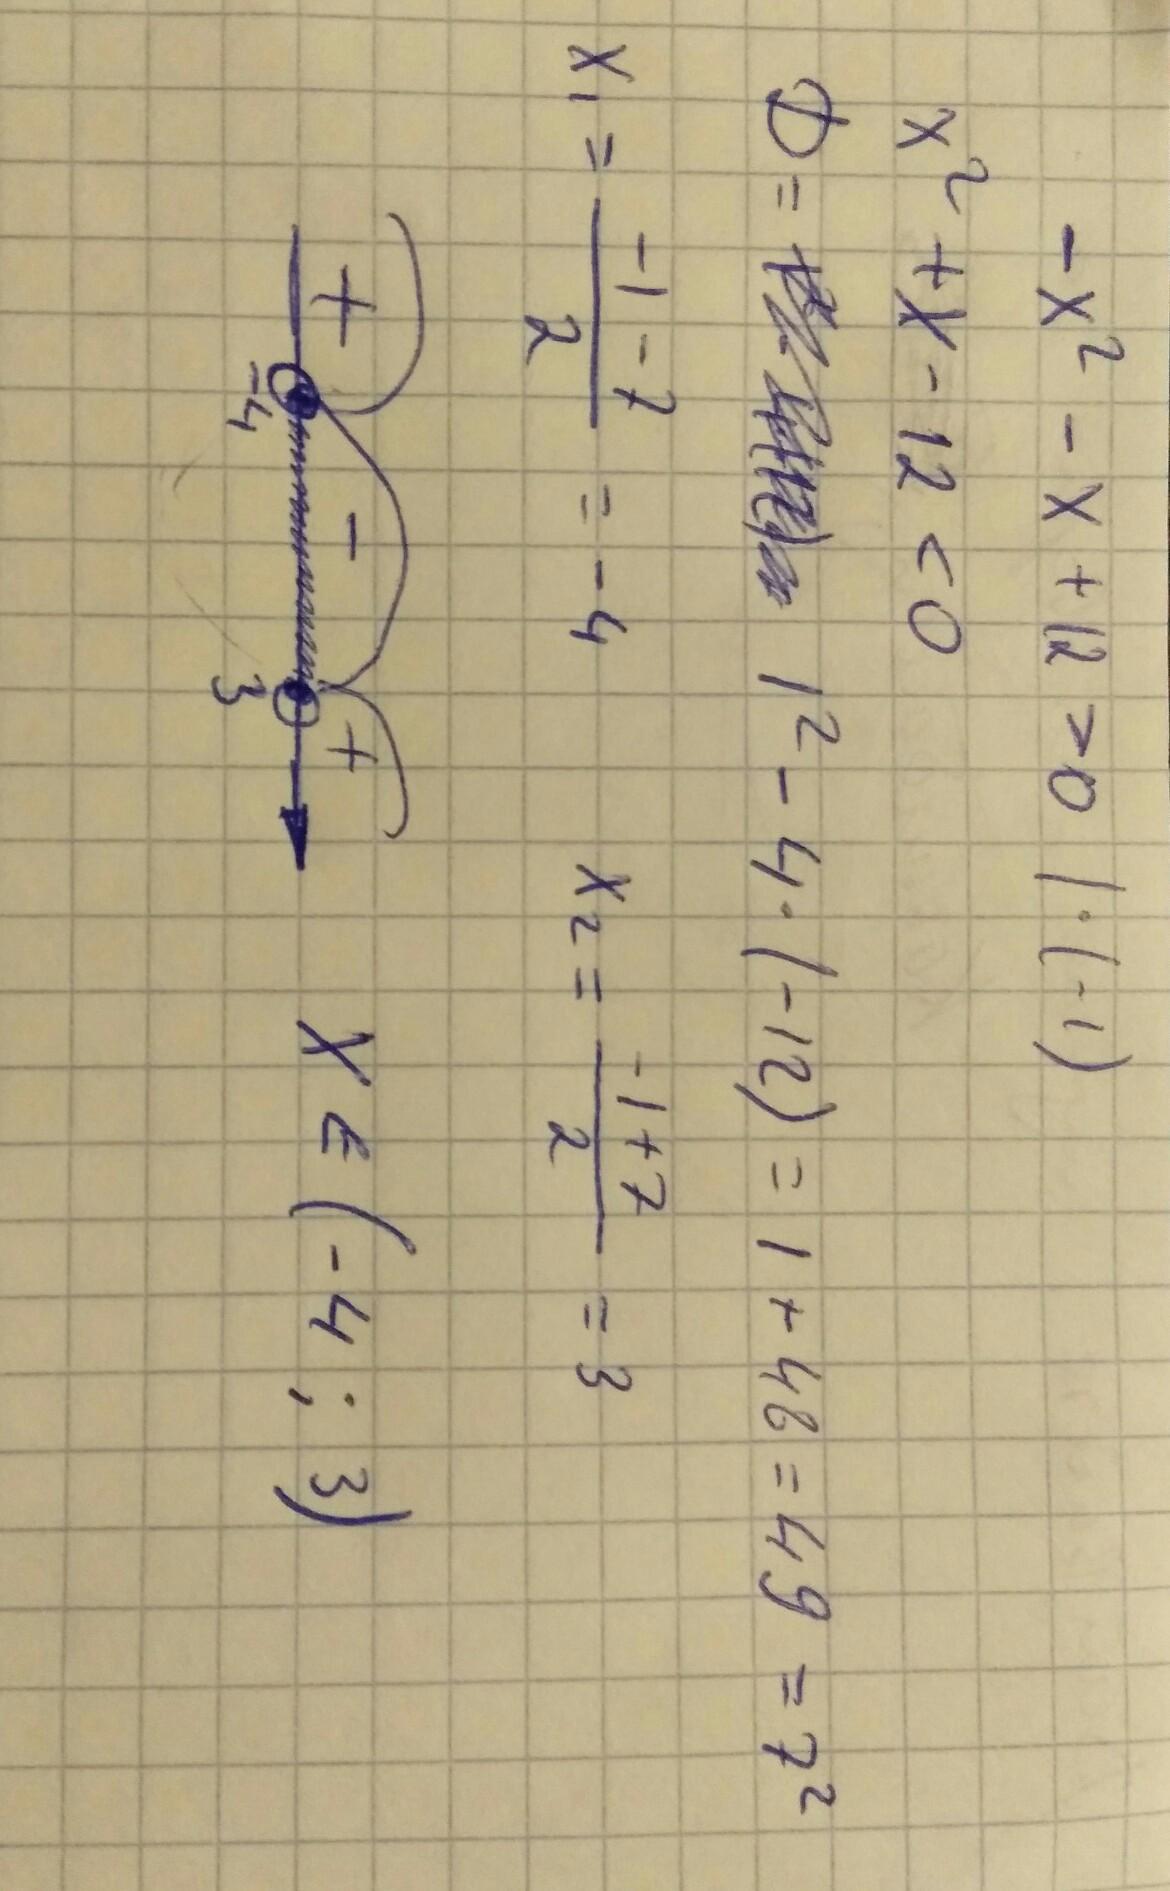 -x² - x + 12 > 0 | · (-1)
x² + x - 12 < 0
D = 1² - 4 · (-12) = 1 + 48 = 49 = 7²
x₁ = (-1 - 7)/2 = -4 x₂ = (-1 + 7)/2 = 3
+ - +
-4 3 x ∈ (-4 ; 3)